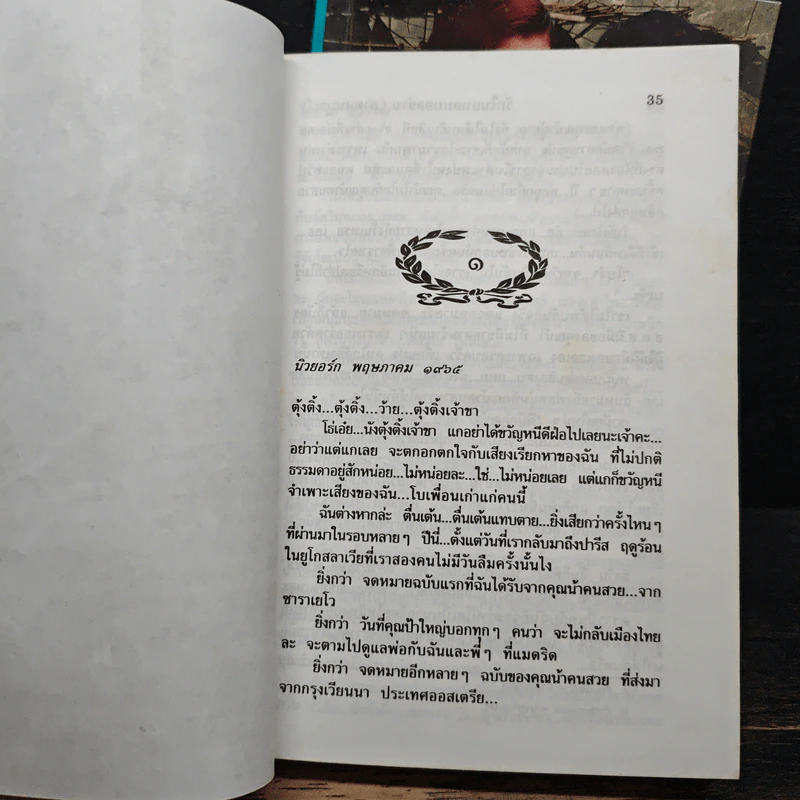 35
๑
นิวยอร์ก พฤษภาคม ๑๙๖๕
ตุ้งติ้ง...ตุ้งติ้ง...ว้าย...ตุ้งติ้งเจ้าขา
โธ่เอ๋ย...นังตุ้งติ้งเจ้าขา แกอย่าได้ขวัญหนีดีฝ่อไปเลยนะเจ้าคะ...
อย่าว่าแต่แกเลย จะตกอกตกใจกับเสียงเรียกหาของฉัน ที่ไม่ปกติ
ธรรมดาอยู่สักหน่อย...ไม่หน่อยละ...ใช่...ไม่หน่อยเลย แต่แกก็ขวัญหนี
จำเพาะเสียงของฉัน...โบเพื่อนเก่าแก่คนนี้
ฉันต่างหากล่ะ ตื่นเต้น...ตื่นเต้นแทบตาย...ยิ่งเสียกว่าครั้งไหนๆ
ที่ผ่านมาในรอบหลายๆ ปีนี่...ตั้งแต่วันที่เรากลับมาถึงปารีส ฤดูร้อน
ในยูโกสลาเวียที่เราสองคนไม่มีวันลืมครั้งนั้นไง
ยิ่งกว่า จดหมายฉบับแรกที่ฉันได้รับจากคุณน้าคนสวย...จาก
ซาราเยโว
ยิ่งกว่า วันที่คุณป้าใหญ่บอกทุกๆ คนว่า จะไม่กลับเมืองไทย
ละ จะตามไปดูแลพ่อกับฉันและพี่ๆ ที่แมดริด
ยิ่งกว่า จดหมายอีกหลายๆ ฉบับของคุณน้าคนสวย ที่ส่งมา
จากกรุงเวียนนา ประเทศออสเตรีย...